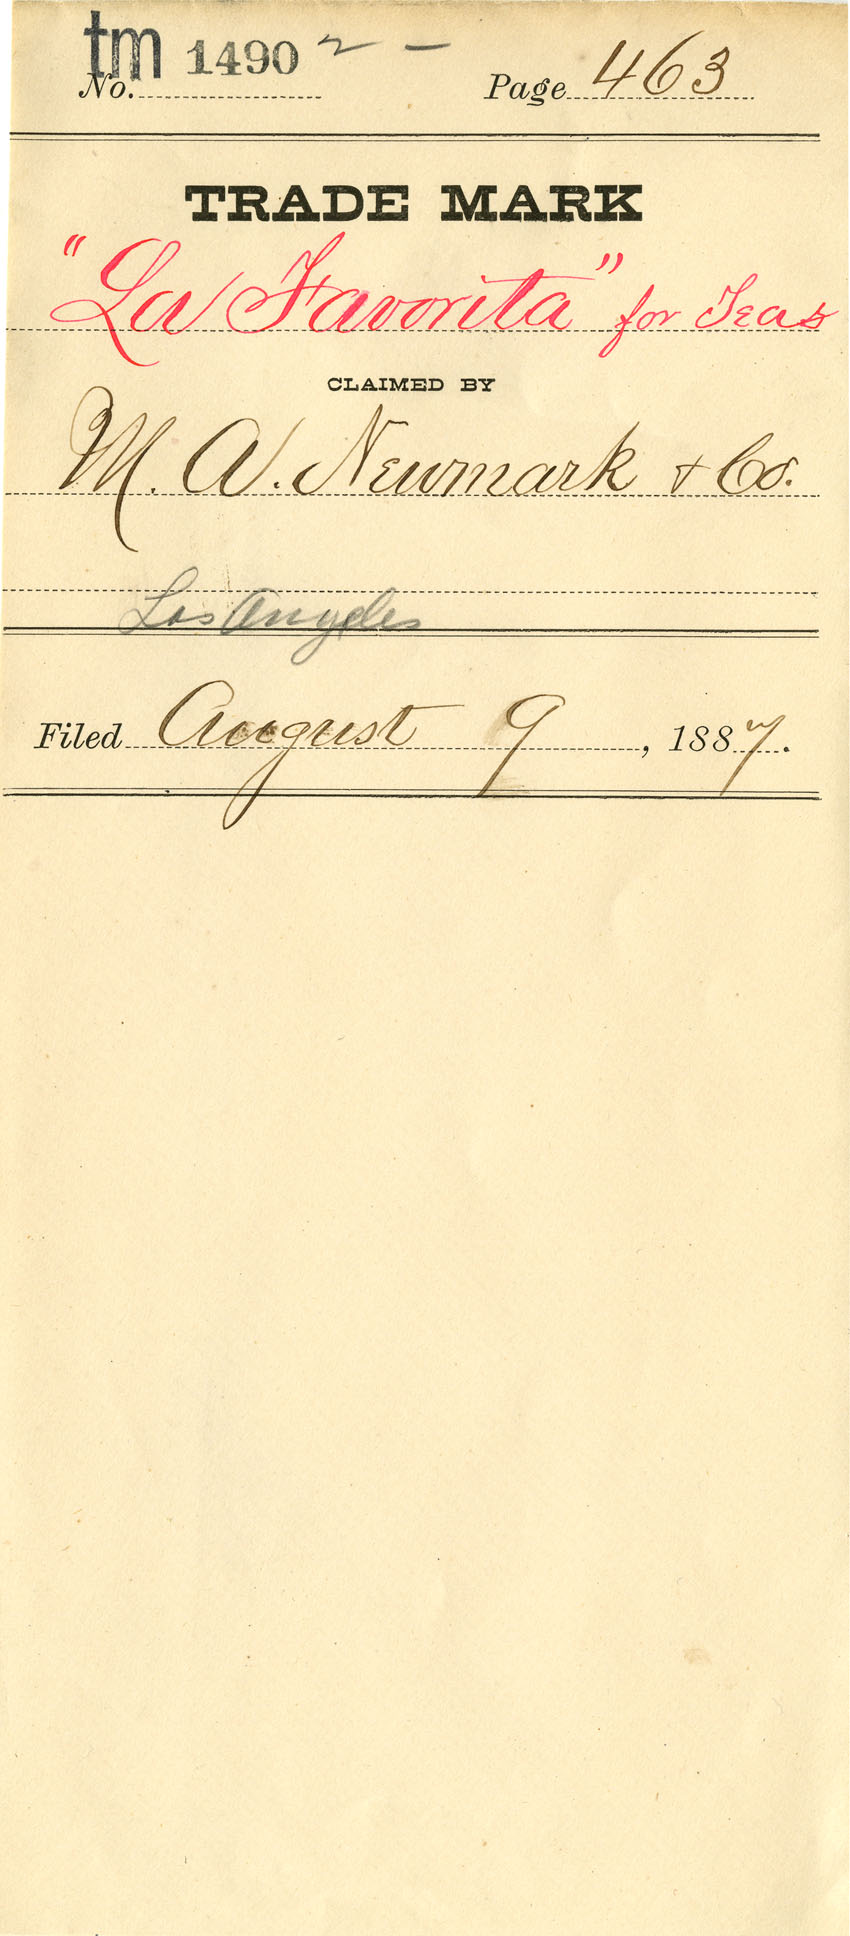 tm 1490 ~ -
No. Page 463
TRADE MARK
"La Favorita" for Teas
CLAIMED BY
M. A. Newmark & Co.
Los Angeles
Filed August 9, 1887.